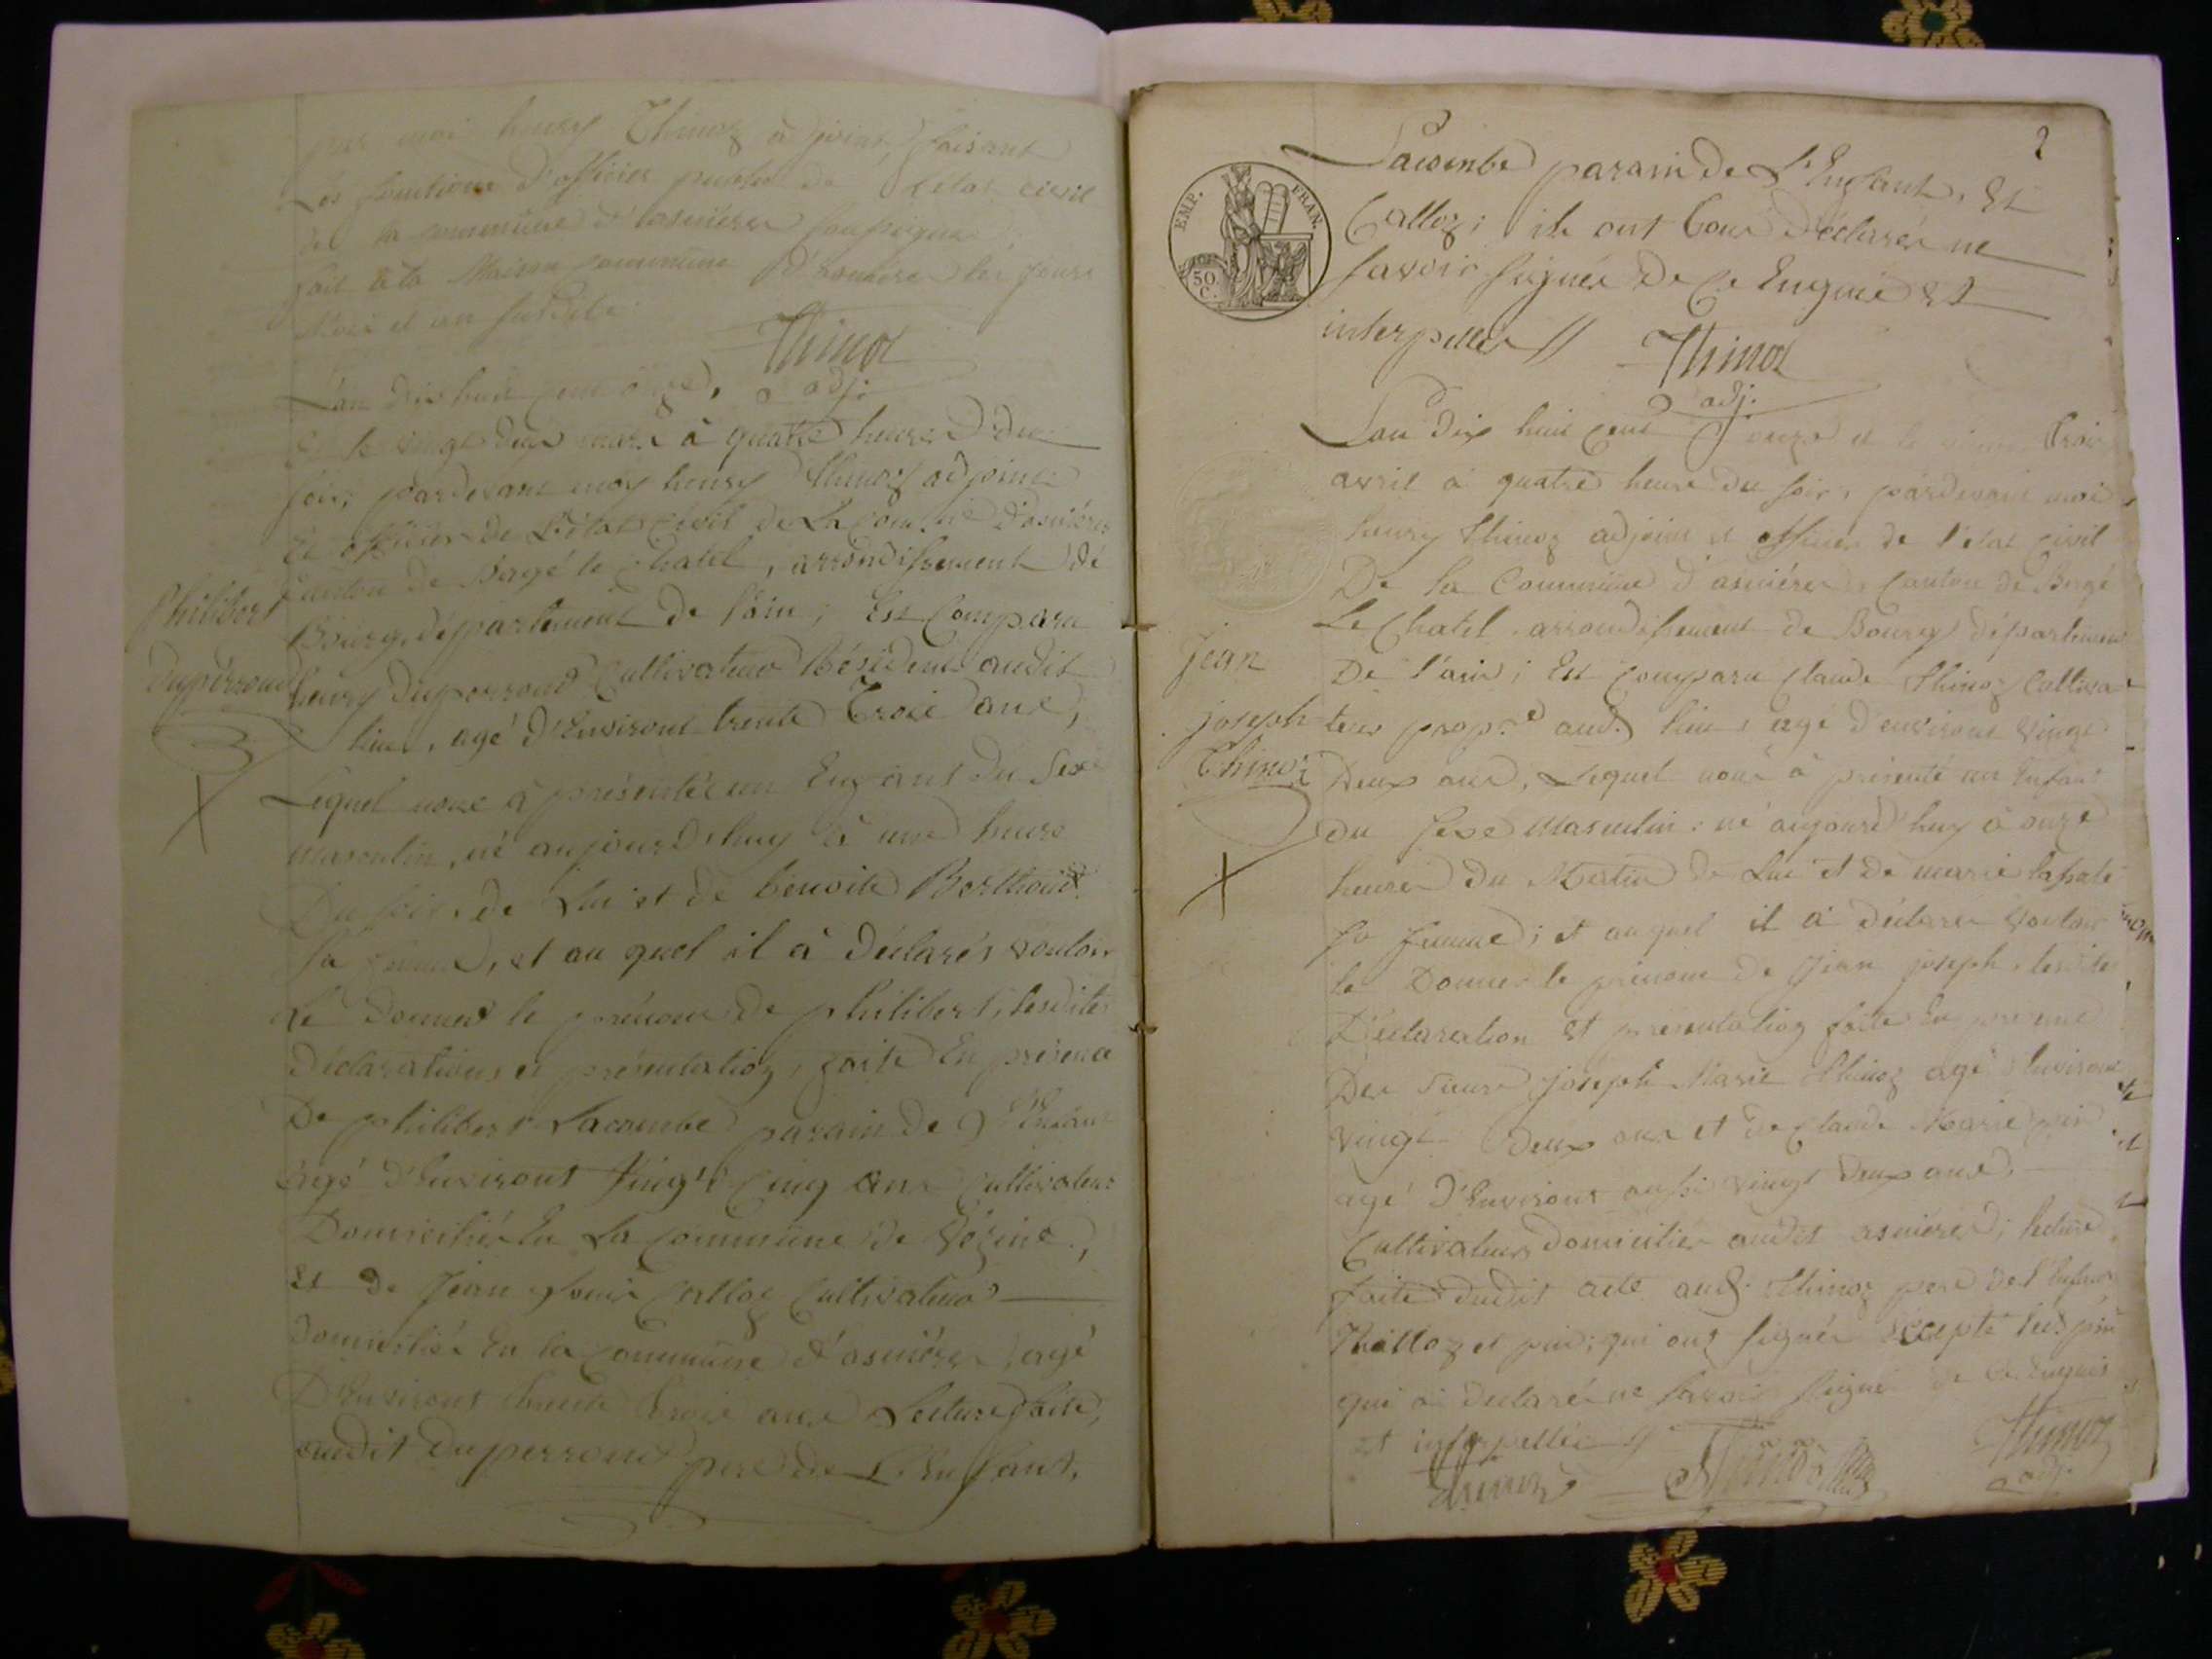 par moi henry Thinoz adjoint, faisant
Les fonctions d'officier public de L'état civil
de la commune d'asnières
fait à la Maison commune d'asnières les jours
Mois et an susdits
Thinoz
adj:
L'an dix huit cent onze,
Et le vingt deux mars à quatre heures du
soir, pardevant moy henry Thinoz adjoint
Et officier de L'état civil de La commune d'asnières
Canton de Bagé le chatel, arrondissement de
Philibert
Bourg, département de l'ain; Est Comparu
Duperroud
henry duperroud Cultivateur Résident audit
lieu, agé d'Environt trente Trois ans,
Lequel nous à présentée un Enfant du Sexe
masculin, né aujourdhuy à une heure
Du soir, de Lui et de benoite Berthoud
sa femme, et au quel il à déclarés vouloir
lé donner le prénom de philibert, lesdites
déclarations et présentation, faite En présence
De philibert Lacombe parain de L'Enfant
agé d'Environt Vingt Cinq ans Cultivateur
Domicilié En La commune de Vézine,
Et de Jean Louis Calloz Cultivateur
domicilié En la commune d'asnières, agé
D'Environt trente trois ans Lecture faite,
audit duperroud pere de L'Enfant,
2
EMP. FRAN.
50 C.
Lacombe parain de L'Enfant, Et
Calloz; ils ont tous déclarés ne
savoir signer de Ce Enquis Et
interpellés //
Thinoz
adj.
L'an dix huit cent onze et le vingt trois
avril à quatre heure du soir, pardevant moi
henry Thinoz adjoint et officier de l'état civil
De la Commune d'asnières, canton de Bagé
Le Chatel, arrondissement de Bourg département
Jean
De l'ain; Est Comparu Claude Thinoz Cultiva
joseph
teur prop.re aud. lieu, agé d'environt vingt
Thinoz
Deux ans, Lequel nous à présenté un Enfant
du sexe Masculin; né aujourd'huy à onze
heures du Matin de Lui et de marie
sa femme; et auquel il à déclarés vouloir
le Donner le prenom de Jean joseph, lesdites
Déclaration Et présentation faite En presence
Des Sieurs joseph Marie Thinoz agé d'Environt
vingt Deux ans et de Claude Marie
agé d'Environt aussi vingt deux ans,
Cultivateurs domiciliés audit asnières; lecture
faite dudit acte aud. Thinoz pere de l'Enfant,
Thinoz et qui ont signés Excepté led.
qui à déclarés ne savoir signer de Ce Enquis
et interpellés //
Thinoz
Thinoz
Thinoz
adj.